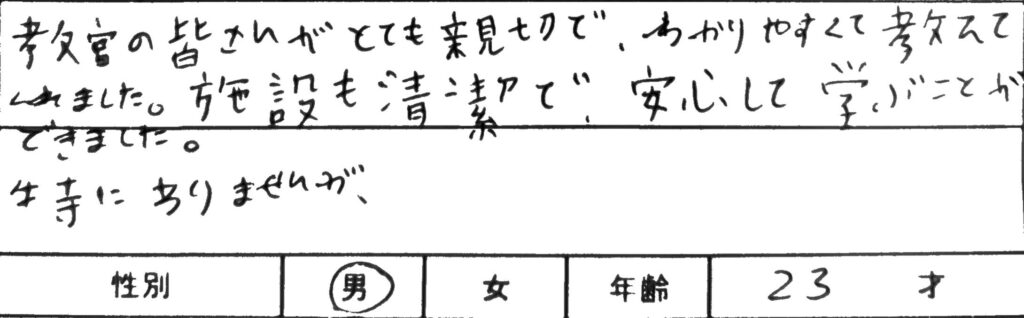 教官の皆さんがとても親切で、わかりやすくて教えて
くれました。施設も清潔で、安心して学ぶことが
できました。
特にありませんが、
性別 男 女 年齢 23 才